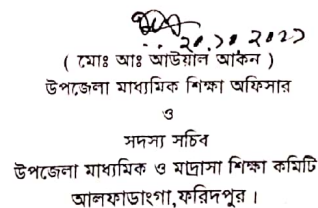 ২০.১০.২০২১
( মোঃ আঃ আউয়াল আকন )
উপজেলা মাধ্যমিক শিক্ষা অফিসার
ও
সদস্য সচিব
উপজেলা মাধ্যমিক ও মাদ্রাসা শিক্ষা কমিটি
আলফাডাংগা,ফরিদপুর ।